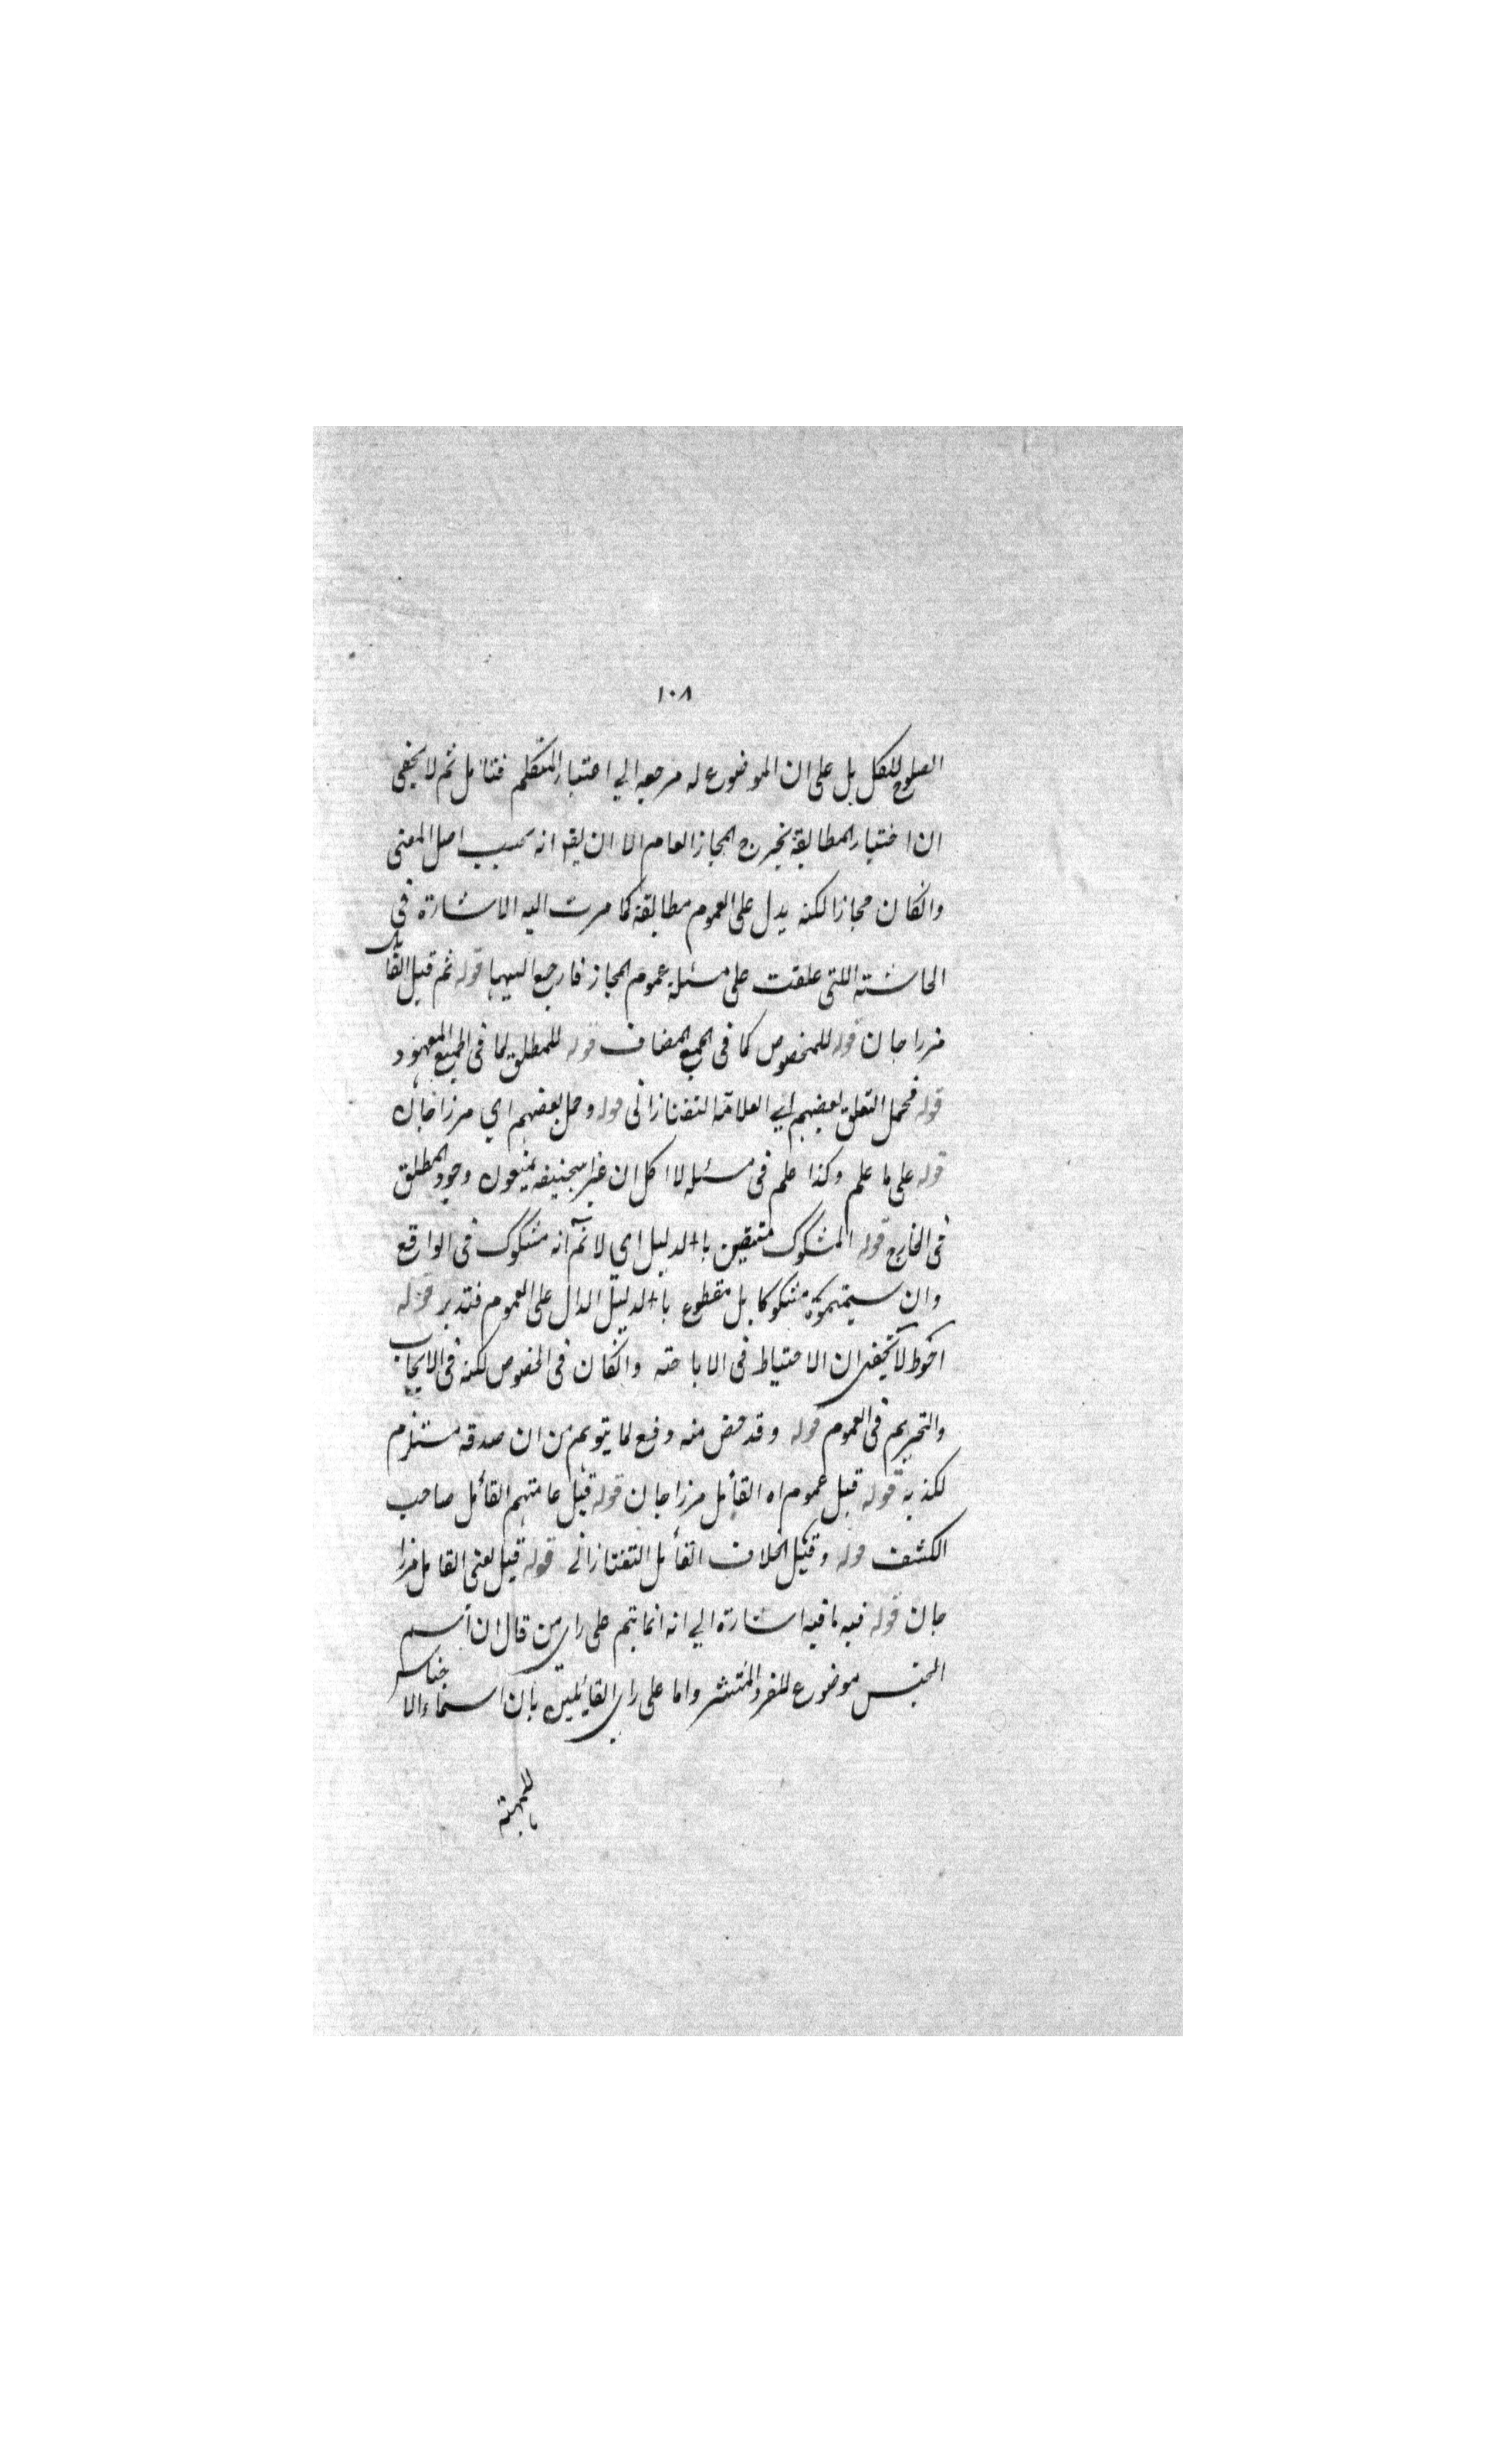 ١٠٨
الصلوح للكل بل على ان الموضوع له مرجعه الي اعتبار المتكلم فتأمل ثم لا يخفى
ان اعتبار المطابقة يخرج المجاز العام الا ان يقو انه بحسب اصل المعنى
وانكان مجازا لكنه يدل على العموم مطابقة كما مرت اليه الاشارة في
الحاشته اللتى علقت على مسئلة عموم المجاز فارجع اليهما قوله ثم قيل القائل
مرزا جان قوله للمخصوص كما فى الجمع المضاف قوله للمطلق لما فى الجمع المعهود
قوله فحمل التعلق بعضهم اي العلامة التفتازانى قوله وحمل بعضهم اي مرزا جان
قوله على ما علم وكذا علم فى مسئله لا اكل ان غير بيجنيفه يمنعون وجود المطلق
فى الخارج قوله المشكوك متيقن بالدليل اي لا نم انه مشكوك فى الواقع
وان سميتموه مشكوكا بل مقطوع بالدليل الدال على العموم فتدبر قوله
احوط لا يخفى ان الاحتياط فى الاباحته وانكان فى الخصوص لكنه فى الايجاب
والتحريم فى العموم قوله وقد خص منه دفع لما يتوهم من ان صدقه مستلزم
لكذبه قوله قيل عموم اه القائل مرزا جان قوله قيل عامتهم القائل صاحب
الكشف قوله وقيل الخلاف القائل التفتازانى قوله قيل يعنى القايل مرزا
جان قوله فيه ما فيه اشارة الي انه انما يتم على راي من قال ان اسم
الجنس موضوع للفرد المنتشر واما على راي القايلين بان اسماء الاجناس
للمهية